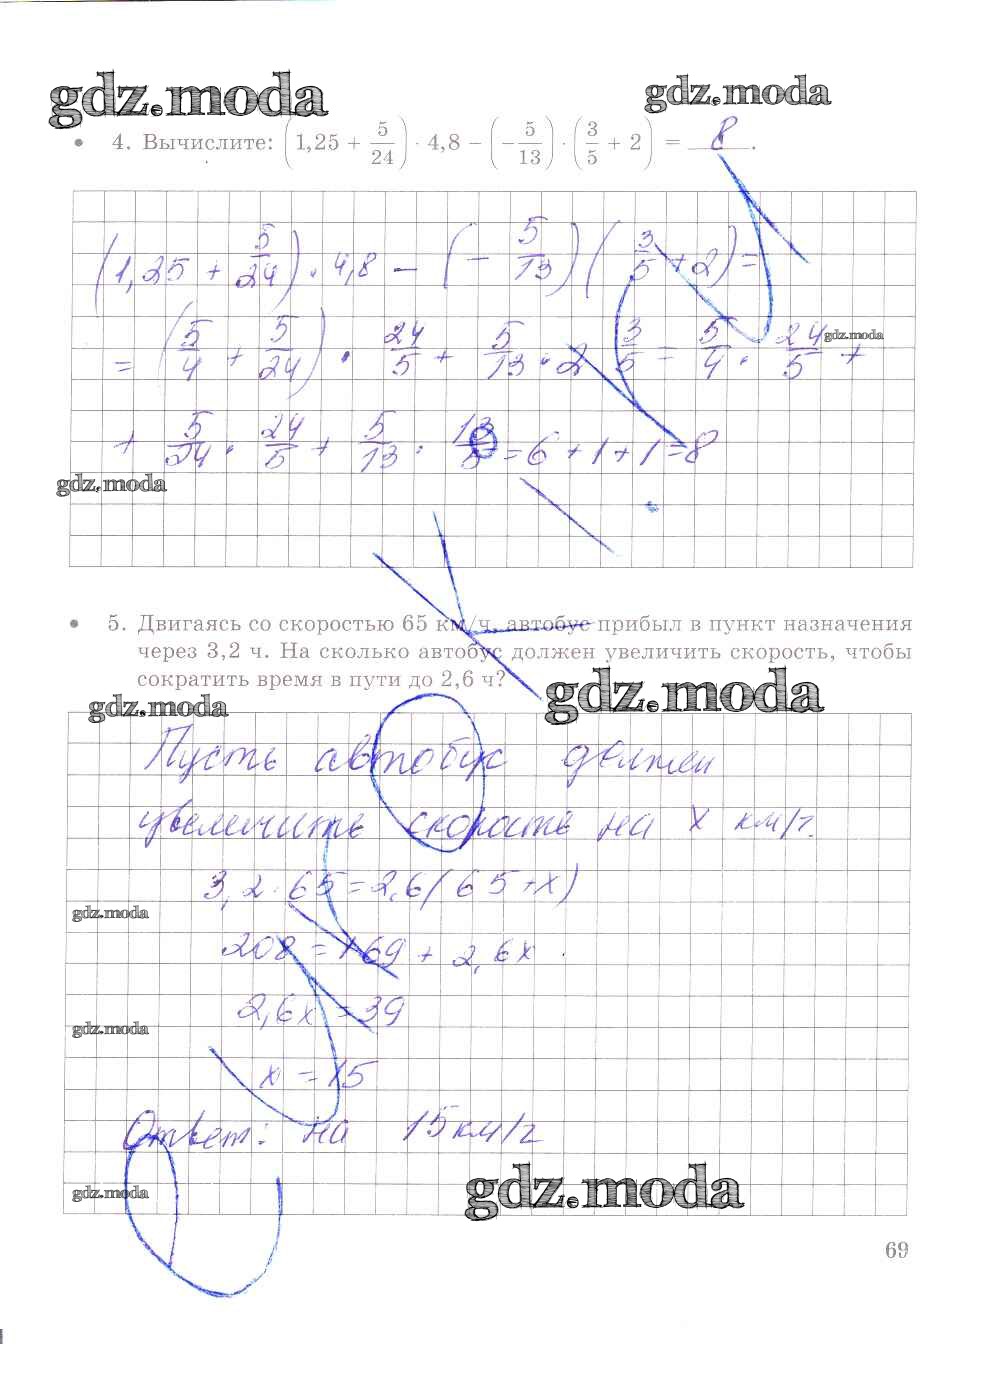 gdz.moda
gdz.moda
• 4. Вычислите: (1,25 + 5/24) · 4,8 − (−5/13) · (3/5 + 2) = 8.
(1,25 + 5/24) · 4,8 − (−5/13)(3/5 + 2) =
= (5/4 + 5/24) · 24/5 + 5/13 · 2 3/5 = 5/4 · 24/5 +
gdz.moda
+ 5/24 · 24/5 + 5/13 · 13/5 = 6 + 1 + 1 = 8
gdz.moda
• 5. Двигаясь со скоростью 65 км/ч, автобус прибыл в пункт назначения
через 3,2 ч. На сколько автобус должен увеличить скорость, чтобы
сократить время в пути до 2,6 ч?
gdz.moda
gdz.moda
Пусть автобус должен
увеличить скорость на х км/ч.
3,2 · 65 = 2,6(65 + х)
gdz.moda
208 = 169 + 2,6х
2,6х = 39
gdz.moda
х = 15
Ответ: на 15 км/ч
gdz.moda
gdz.moda
69